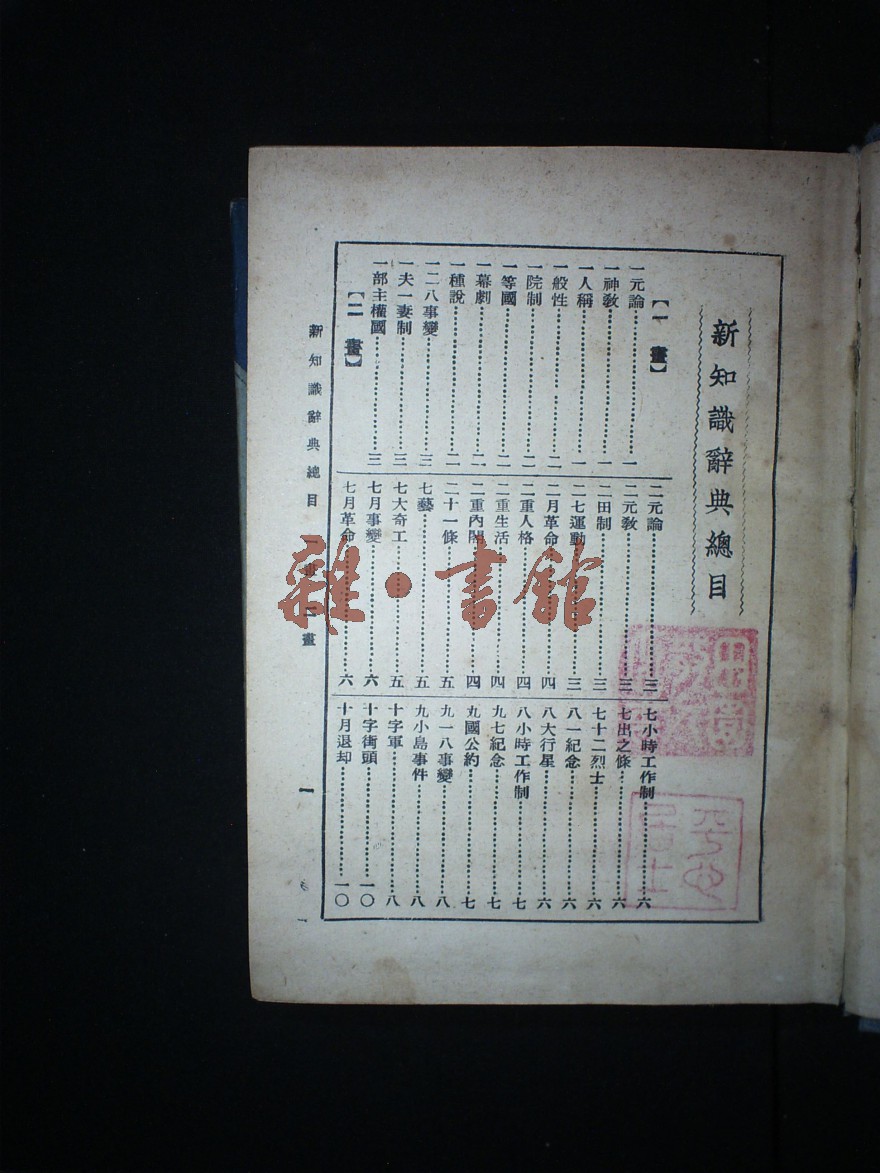 新知識辭典總目
【一畫】
一元論…………一
一神教…………一
一人稱…………一
一般性…………二
一院制…………二
一等國…………二
一幕劇…………二
一種說…………二
一二八事變…………三
一夫一妻制…………三
一部主權國…………三
【二畫】
二元論…………三
二元教…………三
二田制…………三
二七運動…………三
二月革命…………四
二重人格…………四
二重生活…………四
二重內閣…………四
二十一條…………五
七藝…………五
七大奇工…………五
七月事變…………六
七月革命…………六
七小時工作制…………六
七出之條…………六
七十二烈士…………六
八一紀念…………六
八大行星…………六
八小時工作制…………七
九七紀念…………七
九國公約…………七
九一八事變…………八
九小島事件…………八
十字軍…………八
十字街頭…………一〇
十月退却…………一〇
新知識辭典總目 一畫 二畫
一
雜·書館